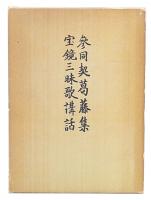 参同契葛藤集
宝鏡三昧歌講話